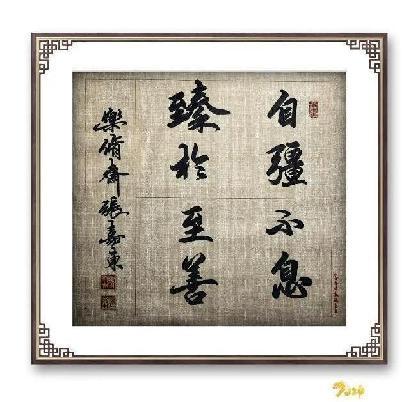 自彊不息
臻於至善
樂脩齋張嘉東